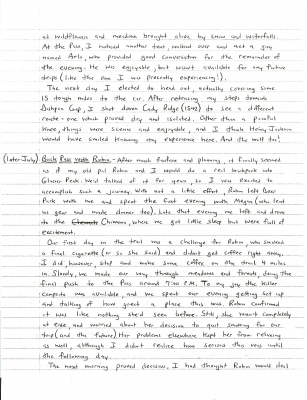 of wildflowers and meadows brought alive by snow and waterfalls.
At the Pass, I noticed another tent, walked over and met a guy
named Arlo, who provided good conversation for the remainder of
the evening. He was enjoyable, but wasn't available for any future
trips (like the one I was presently experiencing!).
The next day I elected to head out, actually covering some
15 rough miles to the car. After retracing my steps towards
Gap, I shot down Cady Ridge (1542) to see a different
route - one which proved dry and isolated. Other than a painful
knee, things were scenic and enjoyable, and I think Henry Jackson
would have smiled knowing my experience here. And the wolf too!
(later July) Buck Pass with Robin - After much picture and planning, it finally seemed
as if my old pal Robin and I would do a real backpack into
Glacier Peak. We'd talked of it for years, so I was elated to
accomplish such a journey. With not a little effort, Robin left Deer
Park with me and spent the first evening with Megan (who lent
us gear and made dinner too). Late that evening we left and drove
to the Chiwawa, where we got little sleep but were full of
excitement.
Our first day on the trail was a challenge for Robin, who smoked
a final cigarette (or so she said) and didn't get coffee right away.
I did, however, stop and make some coffee on the trail 4 miles
in. Slowly, we made our way through meadows and forests, doing the
final push to the Pass around 7:30 P.M. To my joy the killer
campsite was available, and we spent our evening getting set up
and talking of how great a place this was. Robin confirmed
it was like nothing she'd seen before. Still, she wasn't completely
at ease and worried about her decision to quit smoking for our
trip (and the future). Her problems elsewhere kept her from relaxing
as well, although I didn't realize how serious this was until
the following day.
The next morning proved decisive. I had thought Robin would deal